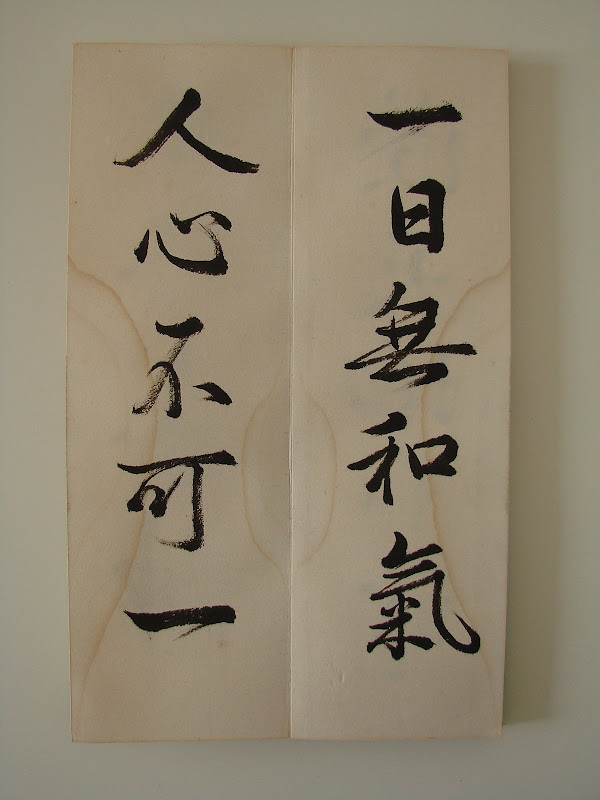 一日無和氣
人心不可一